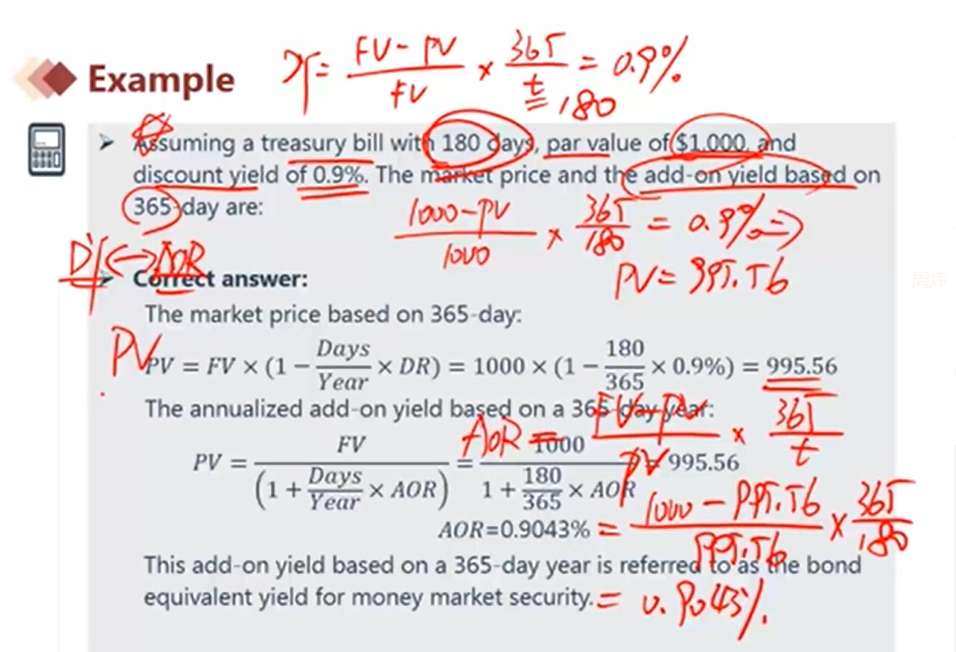 Example
DY = (FV - PV)/FV × 365/t = 0.9%
180
➤ Assuming a treasury bill with 180 days, par value of $1,000, and
discount yield of 0.9%. The market price and the add-on yield based on
365-day are:
(1000 - PV)/1000 × 365/180 = 0.9% ⇒
PV = 995.56
DY ↔ AOR
➤ Correct answer:
The market price based on 365-day:
PV
PV = FV × (1 − Days/Year × DR) = 1000 × (1 − 180/365 × 0.9%) = 995.56
The annualized add-on yield based on a 365-day year:
AOR = (FV - PV)/PV × 365/t
PV = FV/(1 + Days/Year × AOR) = 1000/(1 + 180/365 × AOR) = 995.56
AOR=0.9043% = (1000 - 995.56)/995.56 × 365/180
This add-on yield based on a 365-day year is referred to as the bond
equivalent yield for money market security. = 0.9043%